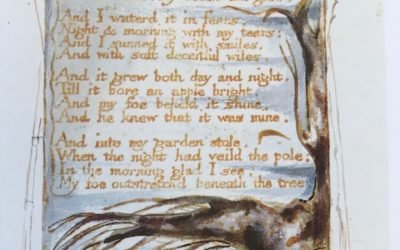 And I waterd it in fears,
Night & morning with my tears:
And I sunned it with smiles,
And with soft deceitful wiles.
And it grew both day and night,
Till it bore an apple bright.
And my foe beheld it shine,
And he knew that it was mine.
And into my garden stole,
When the night had veild the pole;
In the morning glad I see,
My foe outstretchd beneath the tree